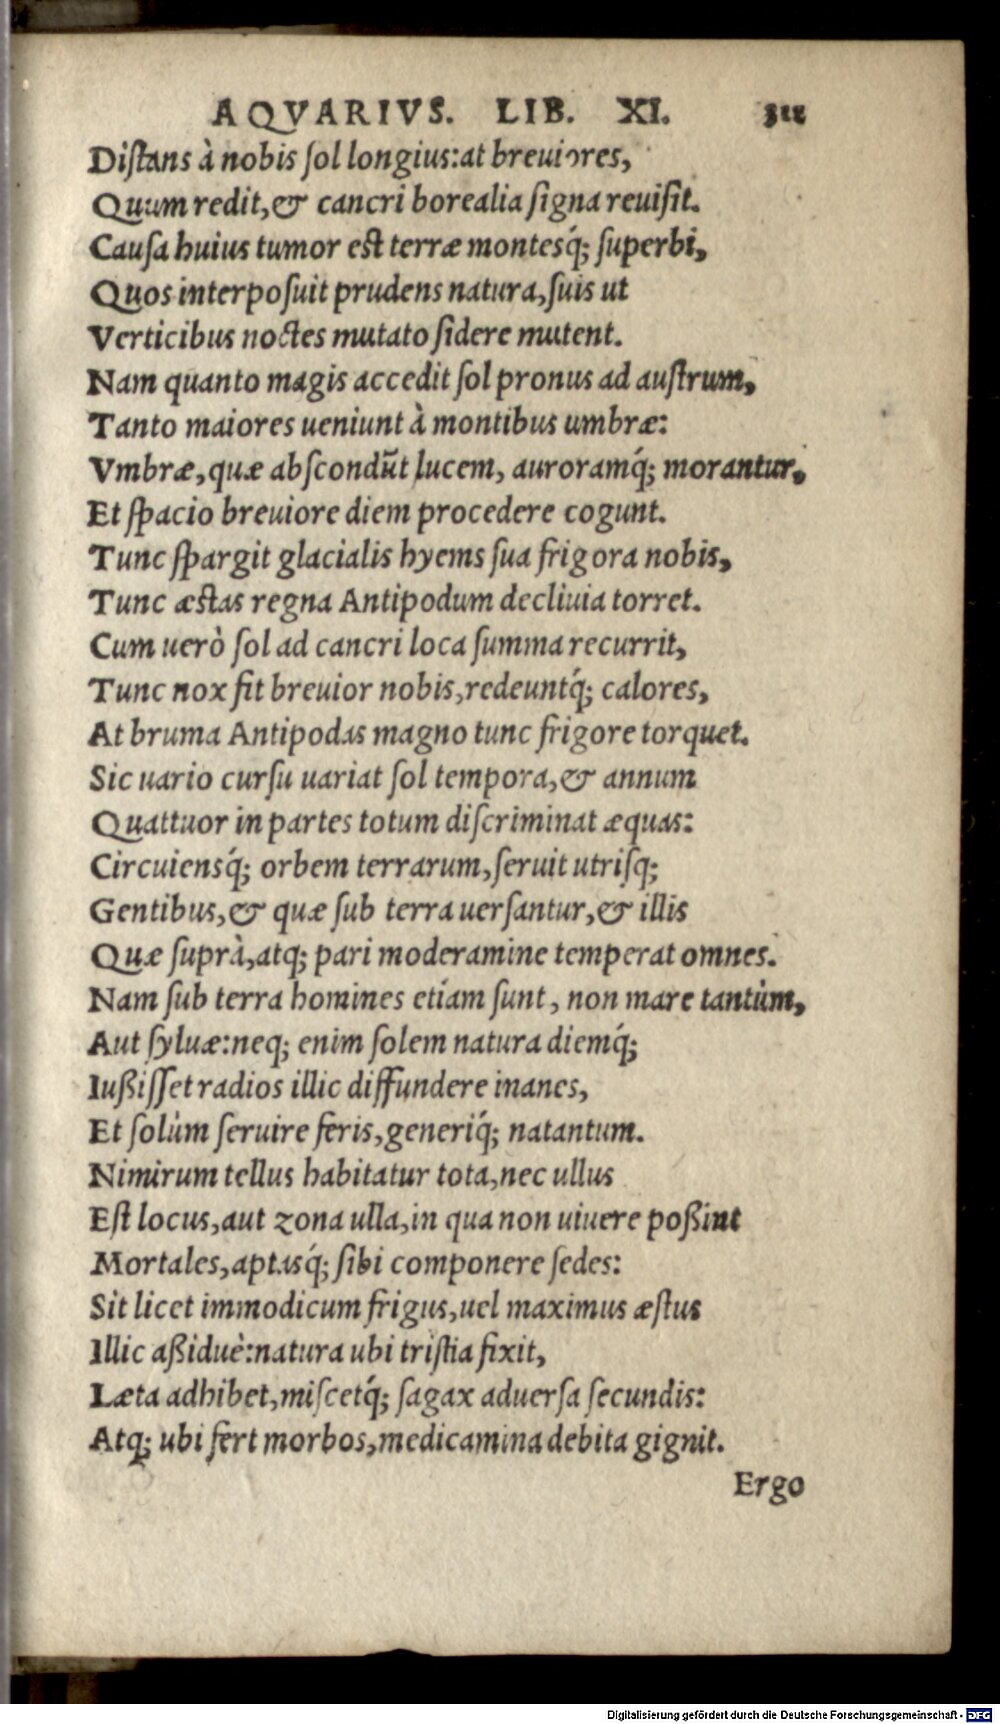 AQVARIVS. LIB. XI. 311
Diſtans à nobis ſol longius:at breuiores,
Quum redit,& cancri borealia ſigna reuiſit.
Cauſa huius tumor eſt terræ montesq́; ſuperbi,
Quos interpoſuit prudens natura,ſuis ut
Verticibus noctes mutato ſidere mutent.
Nam quanto magis accedit ſol pronus ad auſtrum,
Tanto maiores ueniunt à montibus umbræ:
Vmbræ,quæ abſcondūt lucem, auroramq́; morantur,
Et ſpacio breuiore diem procedere cogunt.
Tunc ſpargit glacialis hyems ſua frigora nobis,
Tunc æſtas regna Antipodum decliuia torret.
Cum uerò ſol ad cancri loca ſumma recurrit,
Tunc nox fit breuior nobis,redeuntq́; calores,
At bruma Antipodas magno tunc frigore torquet.
Sic uario curſu uariat ſol tempora,& annum
Quattuor in partes totum diſcriminat æquas:
Circuiensq́; orbem terrarum,ſeruit utriſq;
Gentibus,& quæ ſub terra uerſantur,& illis
Quæ ſuprà,atq; pari moderamine temperat omnes.
Nam ſub terra homines etiam ſunt, non mare tantùm,
Aut ſyluæ:neq; enim ſolem natura diemq́;
Iußiſſet radios illic diffundere inanes,
Et ſolùm ſeruire feris,generiq́; natantum.
Nimirum tellus habitatur tota,nec ullus
Eſt locus,aut zona ulla,in qua non uiuere poßint
Mortales,aptasq́; ſibi componere ſedes:
Sit licet immodicum frigus,uel maximus æſtus
Illic aßiduè:natura ubi triſtia fixit,
Læta adhibet,miſcetq́; ſagax aduerſa ſecundis:
Atq; ubi fert morbos,medicamina debita gignit.
Ergo
Digitalisierung gefördert durch die Deutsche Forschungsgemeinschaft - DFG